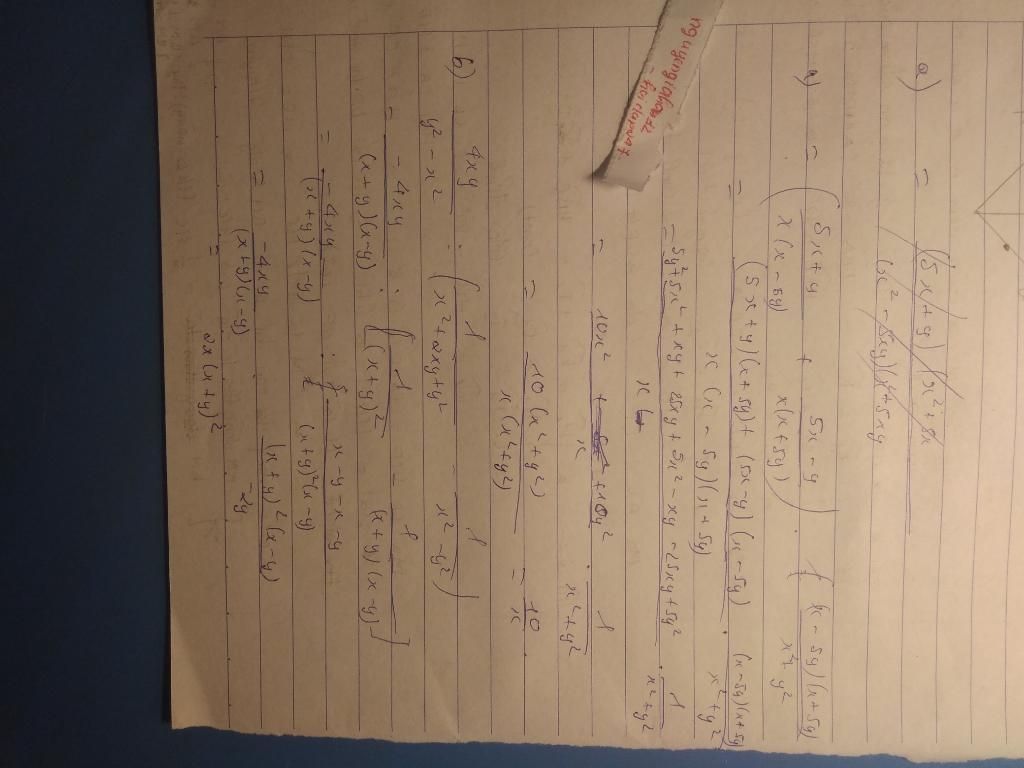 a) = (5x+y)(x²+5x
(x²-5xy)(x²+5xy
a) = ( 5x+y / x(x-5y) + 5x-y / x(x+5y) ) . (x-5y)(x+5y) / x²+y²
= (5x+y)(x+5y) + (5x-y)(x-5y) / x(x-5y)(x+5y) . (x-5y)(x+5y) / x²+y²
= 5y²+5x²+xy+25xy+5x²-xy-25xy+5y² / x . 1 / x²+y²
= 10x² + 10y² / x . 1 / x²+y²
= 10(x²+y²) / x(x²+y²) = 10 / x
b) 4xy / y²-x² : ( 1 / x²+2xy+y² - 1 / x²-y² )
= -4xy / (x+y)(x-y) : [ 1 / (x+y)² - 1 / (x+y)(x-y) ]
= -4xy / (x+y)(x-y) : x-y-x-y / (x+y)²(x-y)
= -4xy / (x+y)(x-y) . (x+y)²(x-y) / -2y
= 2x(x+y)
nguyengiahao22